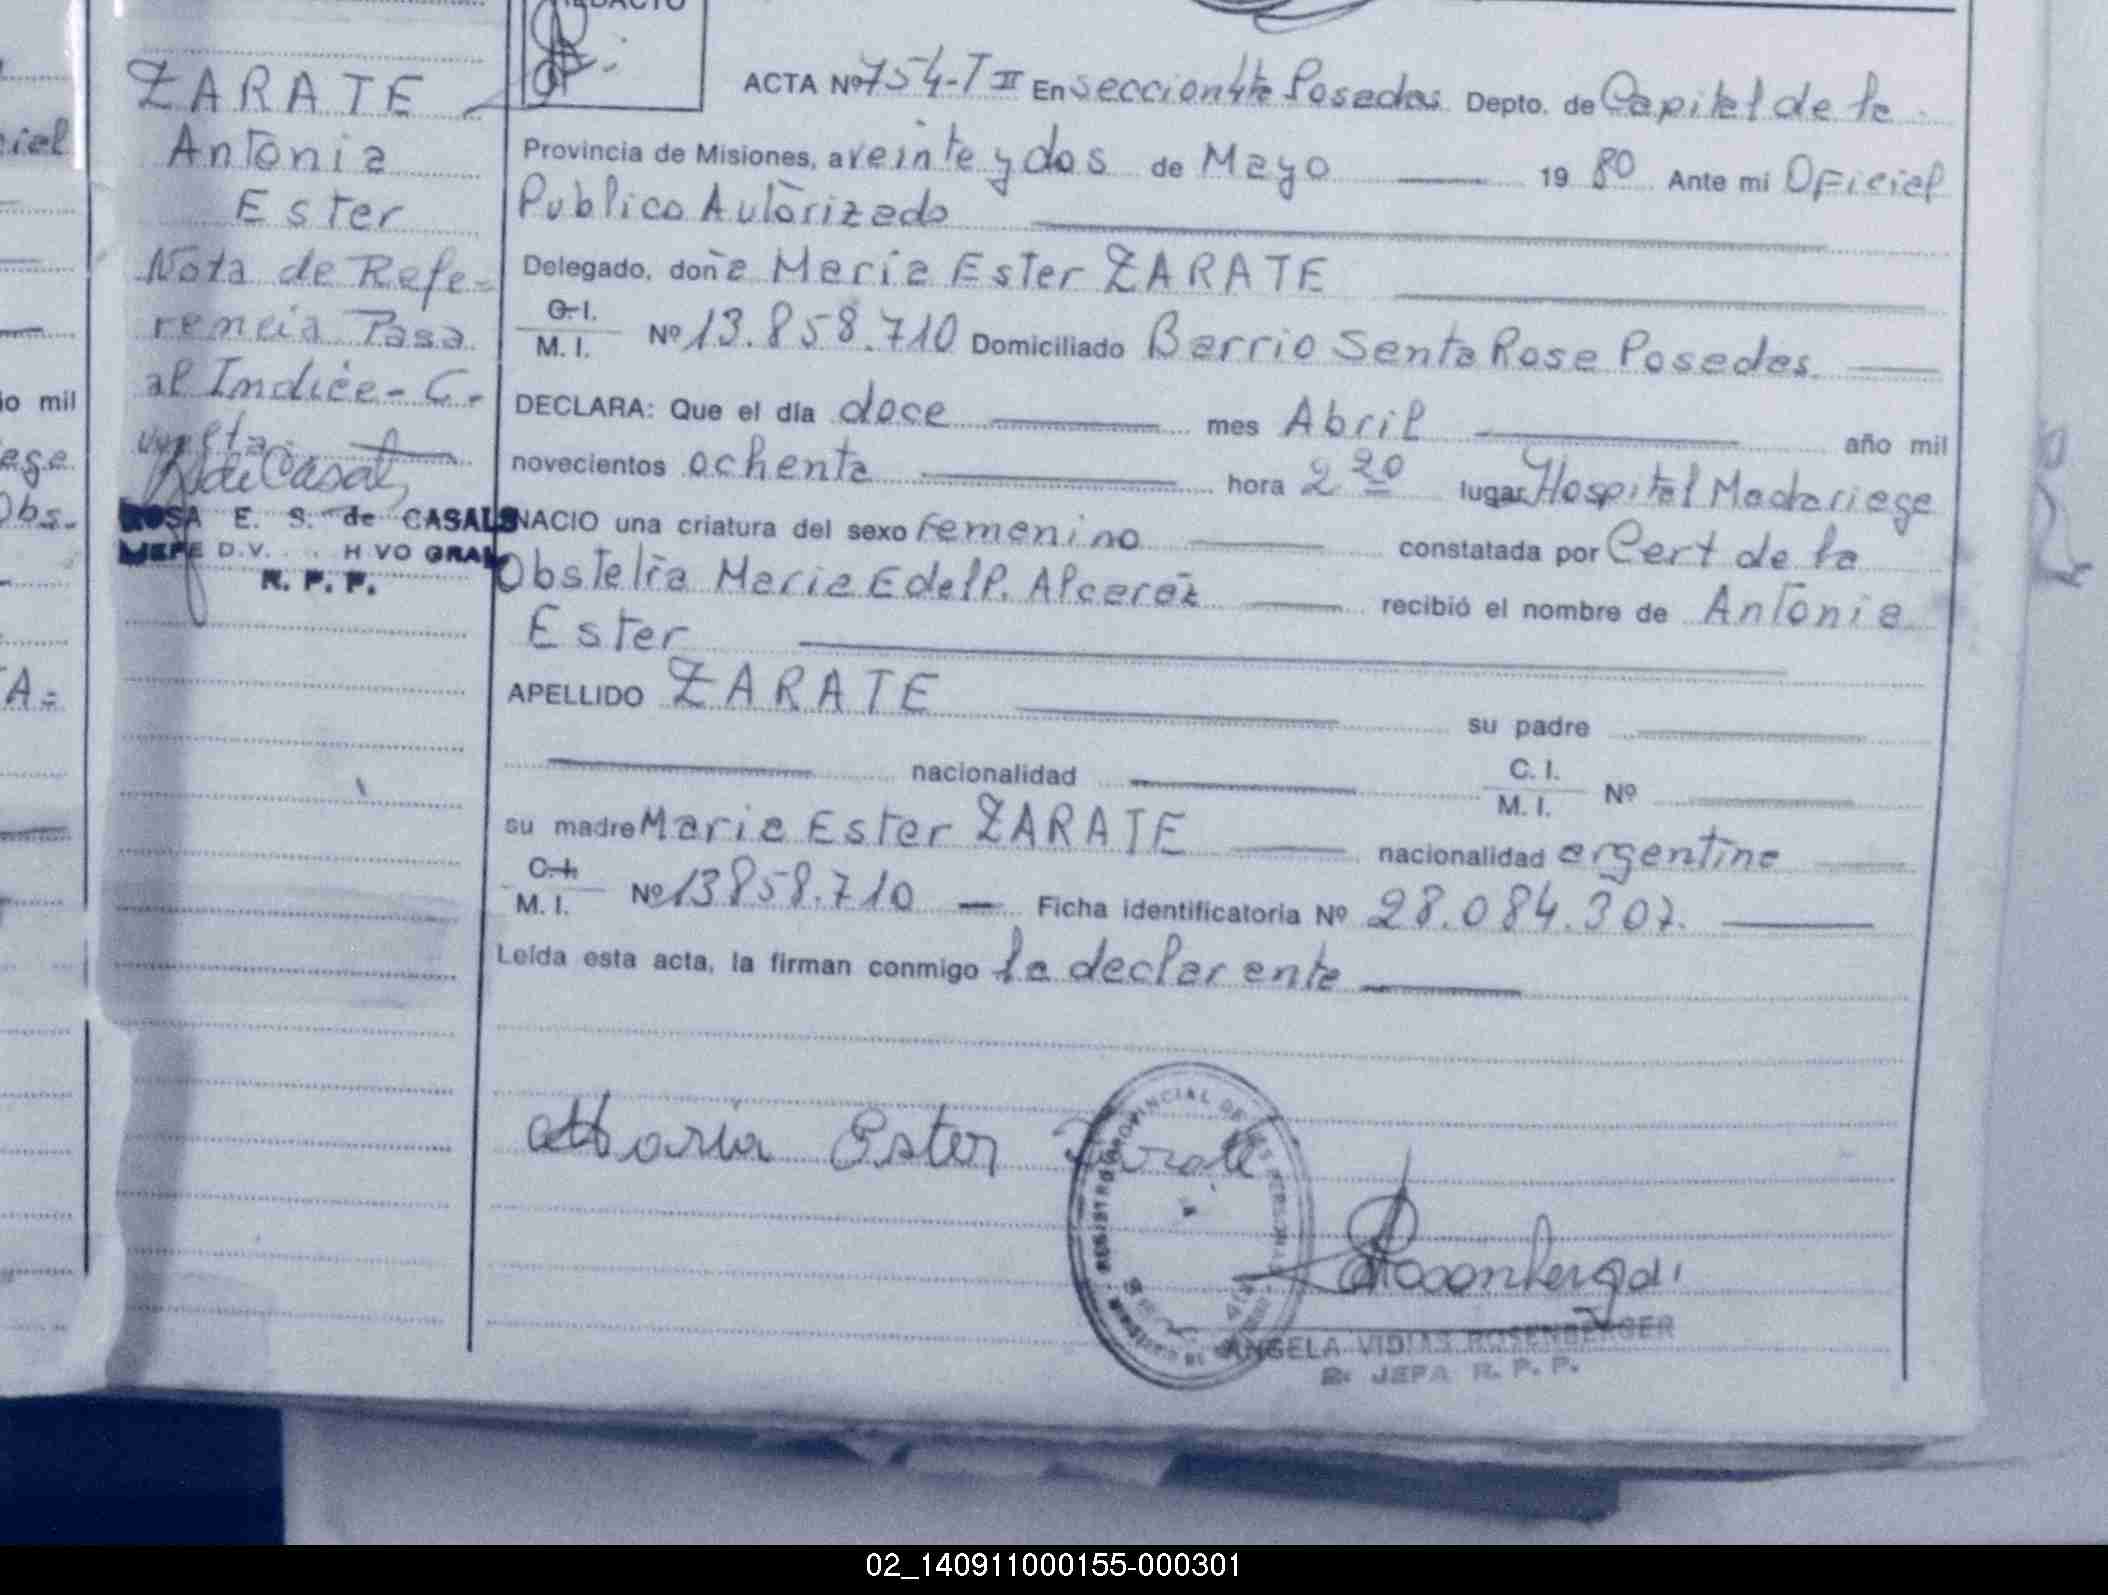 ZARATE
Antonia
Ester
Nota de Refe-
rencia Pasa
al Indice - C.
vuelta.
ROSA E. S. de CASALS
JEFE D.V. H VO GRAL
R. P. P.
REDACTO
ACTA Nº 754-T II En seccion 4ta Posadas Depto. de Capital de la
Provincia de Misiones, a veinte y dos de Mayo 19 80 Ante mi Oficial
Publico Autorizado
Delegado, doña Maria Ester ZARATE
C.I.
M. I. Nº 13.858.710 Domiciliado Barrio Santa Rosa Posadas.
DECLARA: Que el día doce mes Abril año mil
novecientos ochenta hora 2 20 lugar Hospital Madariaga
NACIO una criatura del sexo Femenino constatada por Cert de la
Obstetra Maria Edel P. Alcaráz recibió el nombre de Antonia
Ester
APELLIDO ZARATE su padre
nacionalidad C. I.
M. I. Nº
su madre Maria Ester ZARATE nacionalidad argentina
C.I.
M. I. Nº 13858.710 Ficha identificatoria Nº 28.084.307.
Leída esta acta, la firman conmigo la declarante
Maria Ester Zarate
REGISTRO PROVINCIAL DE LAS PERSONAS
MINISTERIO DE
ANGELA VIDIAS ROSENBERGER
2: JEFA R. P. P.
io mil
Obs.
02_140911000155-000301